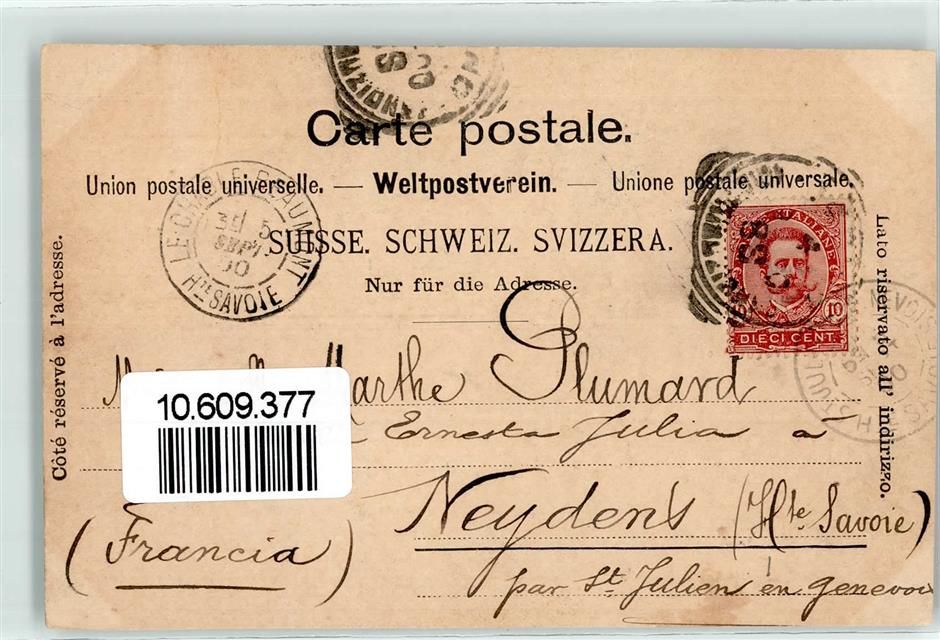 Carte postale.
Union postale universelle. — Weltpostverein. — Unione postale universale.
SUISSE. SCHWEIZ. SVIZZERA.
Nur für die Adresse.
Côté réservé à l'adresse.
Lato riservato all' indirizzo.
LE CHABLE-BEAUMONT
SEPT.
Hte SAVOIE
10
DIECI.CENT.
10.609.377
Marthe Plumard
Ernesta Julia à
Neydens (Hte Savoie)
(Francia)
par St Julien en genevois